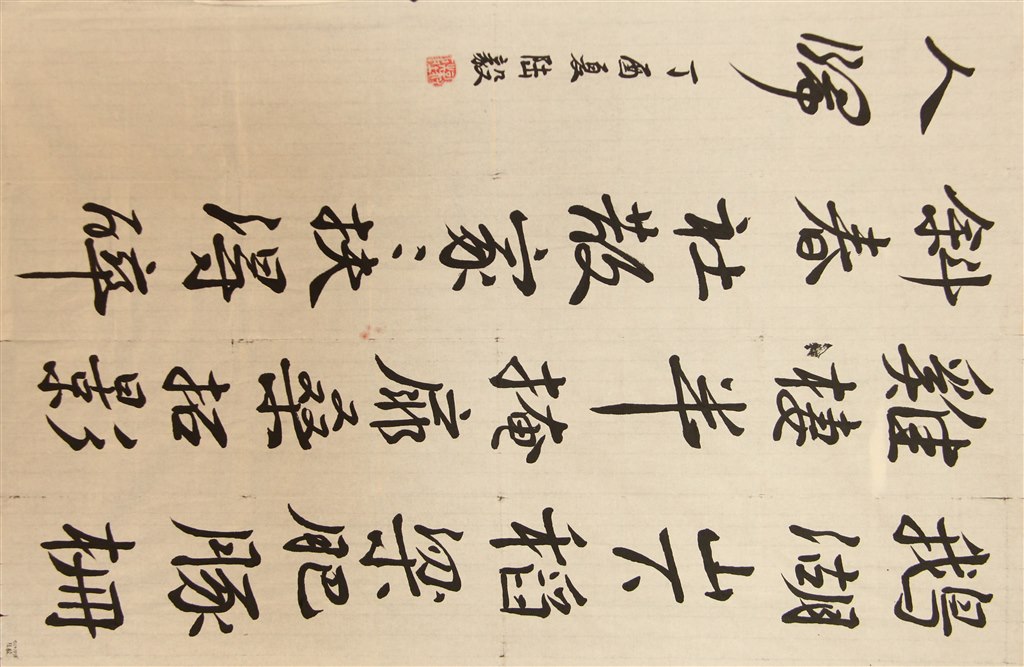 鵝湖山下稻粱肥豚柵
雞棲半掩扉桑柘影
斜春社散家〻扶得醉
人歸
丁酉夏陸毅